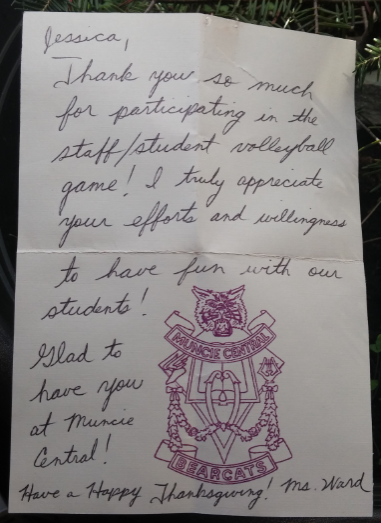 Jessica,
Thank you so much
for participating in the
staff/student volleyball
game! I truly appreciate
your efforts and willingness
to have fun with our
students!
Glad to
have you
at Muncie
Central!
MUNCIE CENTRAL
BEARCATS
Have a Happy Thanksgiving! Ms. Ward